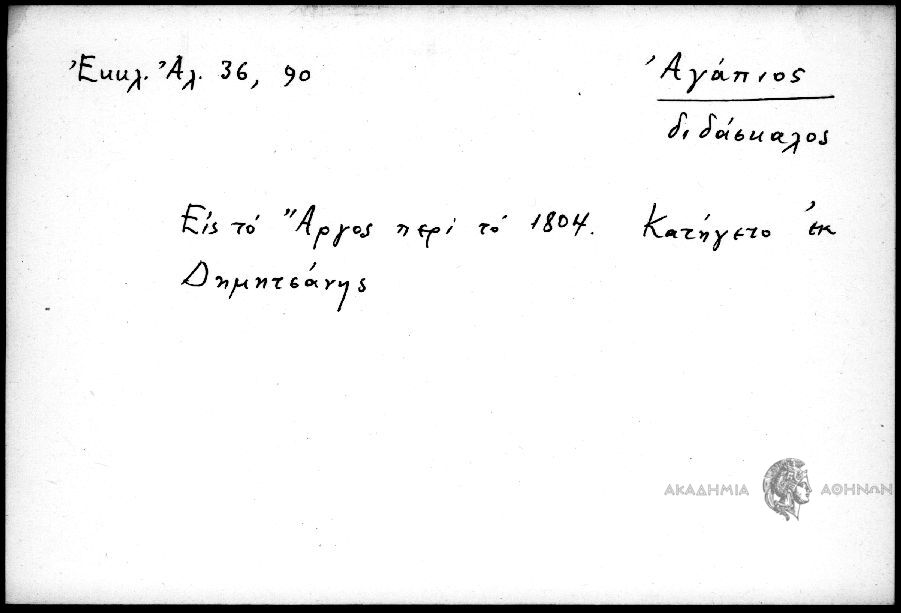 Ἐκκλ. Ἀλ. 36, 90
Ἀγάπιος
διδάσκαλος
Εἰς τό Ἄργος περί τό 1804. Κατήγετο ἐκ
Δημητσάνης
ΑΚΑΔΗΜΙΑ ΑΘΗΝΩΝ